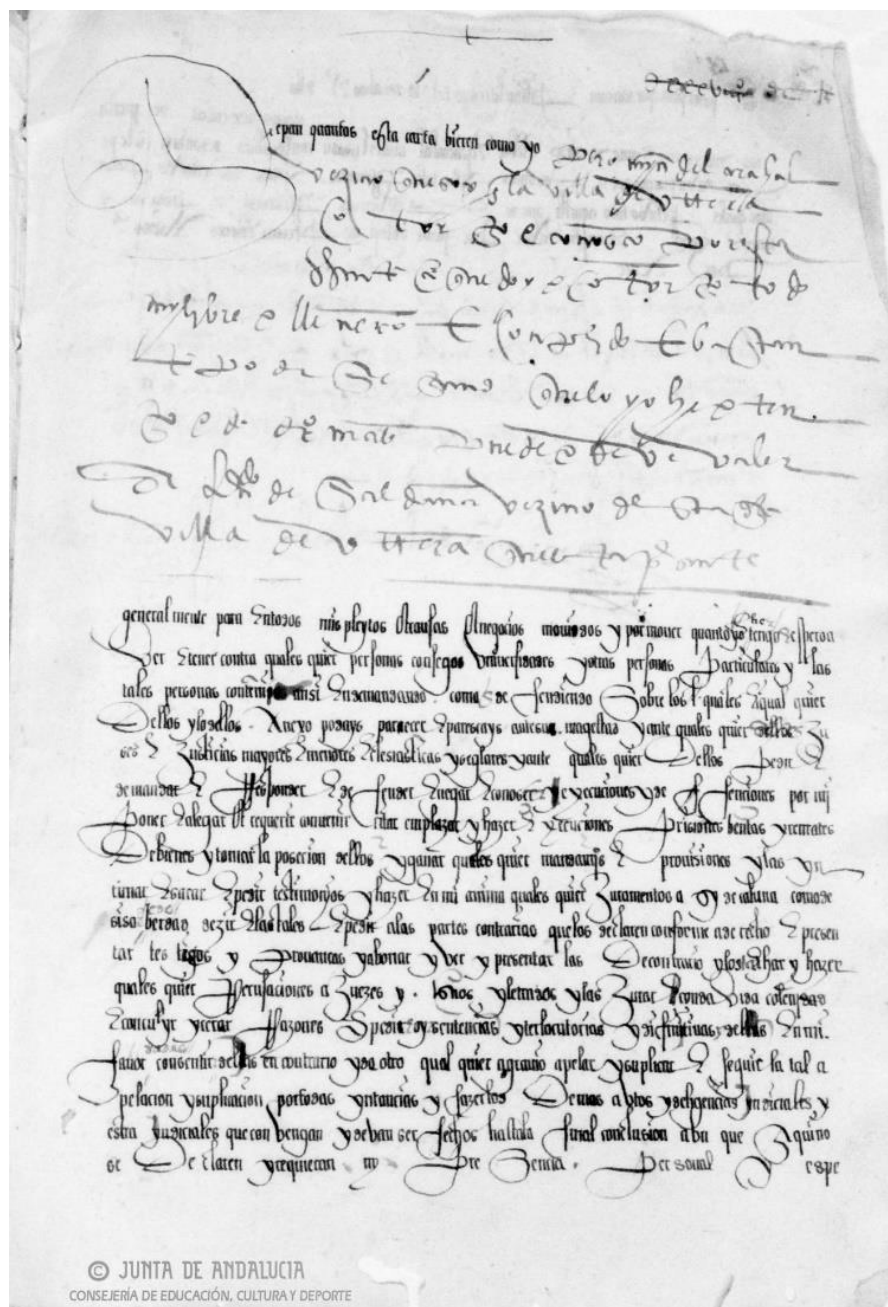 Sepan quantos esta carta bieren como yo Pero min del arahal
vezino que soy de la villa de Vttera
otorgo e conosco por esta
presente carta que do y otorgo todo
my libre e llenero conplido e bastan
te poder segund que lo yo he e ten
go e de derecho mas puede e deve valer
a de Saldaña vezino de esta dha
villa de Vttera questa presente
general mente para en todos mis pleytos e cabsas e negocios movidos y por mover quantos yo tengo e espero a
ver e tener contra quales quier personas consegos e universidades y otras personas particulares y las
tales personas contra my ansi en demandando como de fendiendo sobre los quales e qual quier
dellos y lo dellos nuevo podays parecer e parescays ante su magestad y ante quales quier alldes ju
ezes e Justicias mayores e menores eclesiasticas y seglares y ante quales quier dellos pedir e
demandar e Responder e de fender e negar e conoser e de execuciones y de fenciones por mi
poner e alegar e requerir convenir citar emplazar y hazer execuciones prisiones bentas y remates
de bienes y tomar la posecion dellos y ganar quales quier mandamyos e provisiones y las yn
timar e sacar e pedir testimonyos y hazer en mi anima quales quier Juramentos a sy de calunia como de
siso berdad dezir e las tales e pedir a las partes contrarias que los declaren conforme a derecho e presen
tar testigos y provancas y abonar y ver y presentar las de contrario y los tachar y hazer
quales quier Recusaciones a Juezes y esnos y letrados y las Jurar con da vida solenydad
e concluyr y cerrar Razones e pedir e oyr sentencias ynterlocutorias y difinitivas e dellas en mi
favor consentir e dellas en contrario y de otro qual quier agravio apelar y suplicar e seguir la tal a
pelacion y suplicacion por todas ynstancias y fazer los demas abtos y deligencias Judiciales y
estra Judiciales que con bengan y deban ser fechos hasta la final conclusion abn que aqui no
se declaren y requieran my presencia personal y espe
© JUNTA DE ANDALUCIA
CONSEJERÍA DE EDUCACIÓN, CULTURA Y DEPORTE